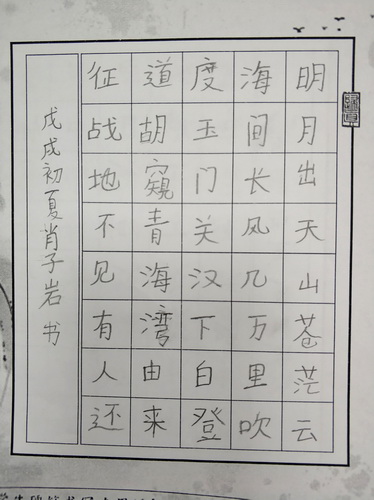 明月出天山苍茫云
海间长风几万里吹
度玉门关汉下白登
道胡窥青海湾由来
征战地不见有人还
戊戌初夏肖子岩书